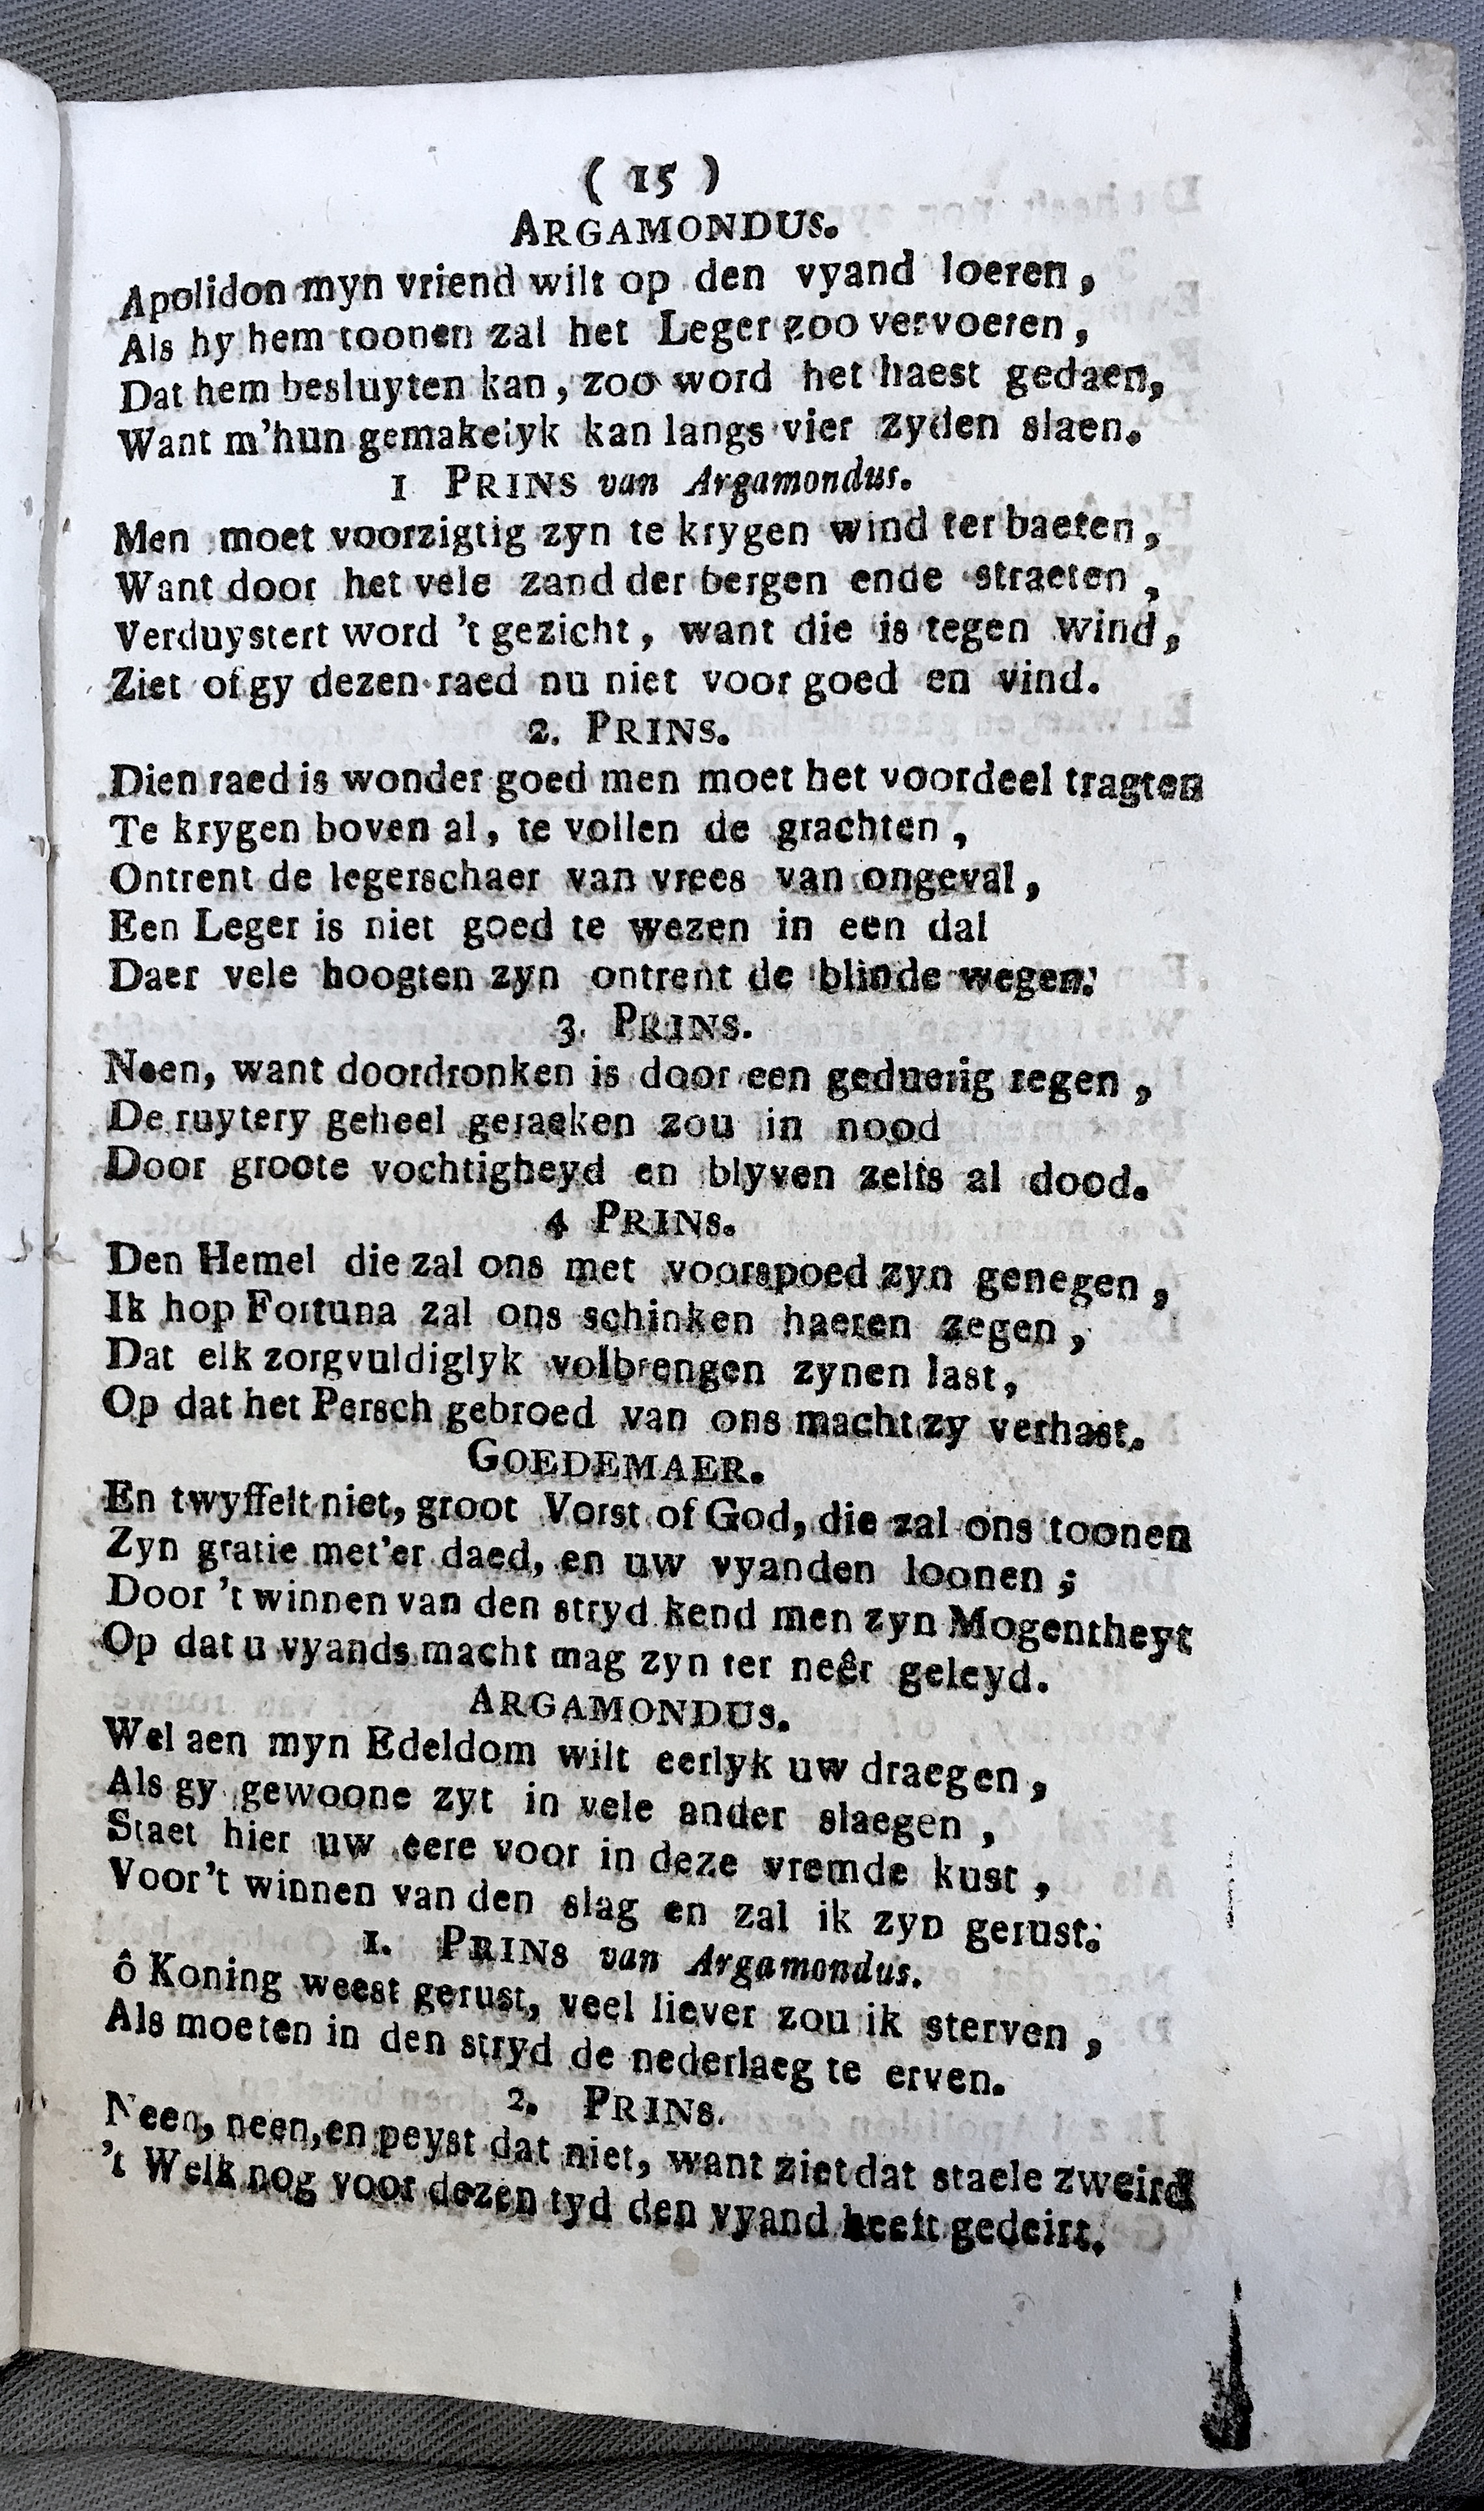 ( 15 )
ARGAMONDUS.
Apolidon myn vriend wilt op den vyand loeren,
Als hy hem toonen zal het Leger zoo vervoeren,
Dat hem besluyten kan, zoo word het haest gedaen,
Want m'hun gemakelyk kan langs vier zyden slaen.
1 PRINS van Argamondus.
Men moet voorzigtig zyn te krygen wind ter baeten,
Want door het vele zand der bergen ende straeten,
Verduystert word 't gezicht, want die is tegen wind,
Ziet of gy dezen raed nu niet voor goed en vind.
2. PRINS.
Dien raed is wonder goed men moet het voordeel tragten
Te krygen boven al, te vollen de grachten,
Ontrent de legerschaer van vrees van ongeval,
Een Leger is niet goed te wezen in een dal
Daer vele hoogten zyn ontrent de blinde wegen.
3. PRINS.
Neen, want doordronken is door een geduerig regen,
De ruytery geheel geraeken zou in nood
Door groote vochtigheyd en blyven zelfs al dood.
4 PRINS.
Den Hemel die zal ons met voorspoed zyn genegen,
Ik hop Fortuna zal ons schinken haeren zegen,
Dat elk zorgvuldiglyk volbrengen zynen last,
Op dat het Persch gebroed van ons macht zy verhast.
GOEDEMAER.
En twyffelt niet, groot Vorst of God, die zal ons toonen
Zyn gratie met'er daed, en uw vyanden loonen;
Door 't winnen van den stryd kend men zyn Mogentheyt
Op dat u vyands macht mag zyn ter neêr geleyd.
ARGAMONDUS.
Wel aen myn Edeldom wilt eerlyk uw draegen,
Als gy gewoone zyt in vele ander slaegen,
Staet hier uw eere voor in deze vremde kust,
Voor 't winnen van den slag en zal ik zyn gerust.
1. PRINS van Argamondus.
ô Koning weest gerust, veel liever zou ik sterven,
Als moeten in den stryd de nederlaeg te erven.
2. PRINS.
Neen, neen, en peyst dat niet, want ziet dat staele zweird
't Welk nog voor dezen tyd den vyand heeft gedeirt.